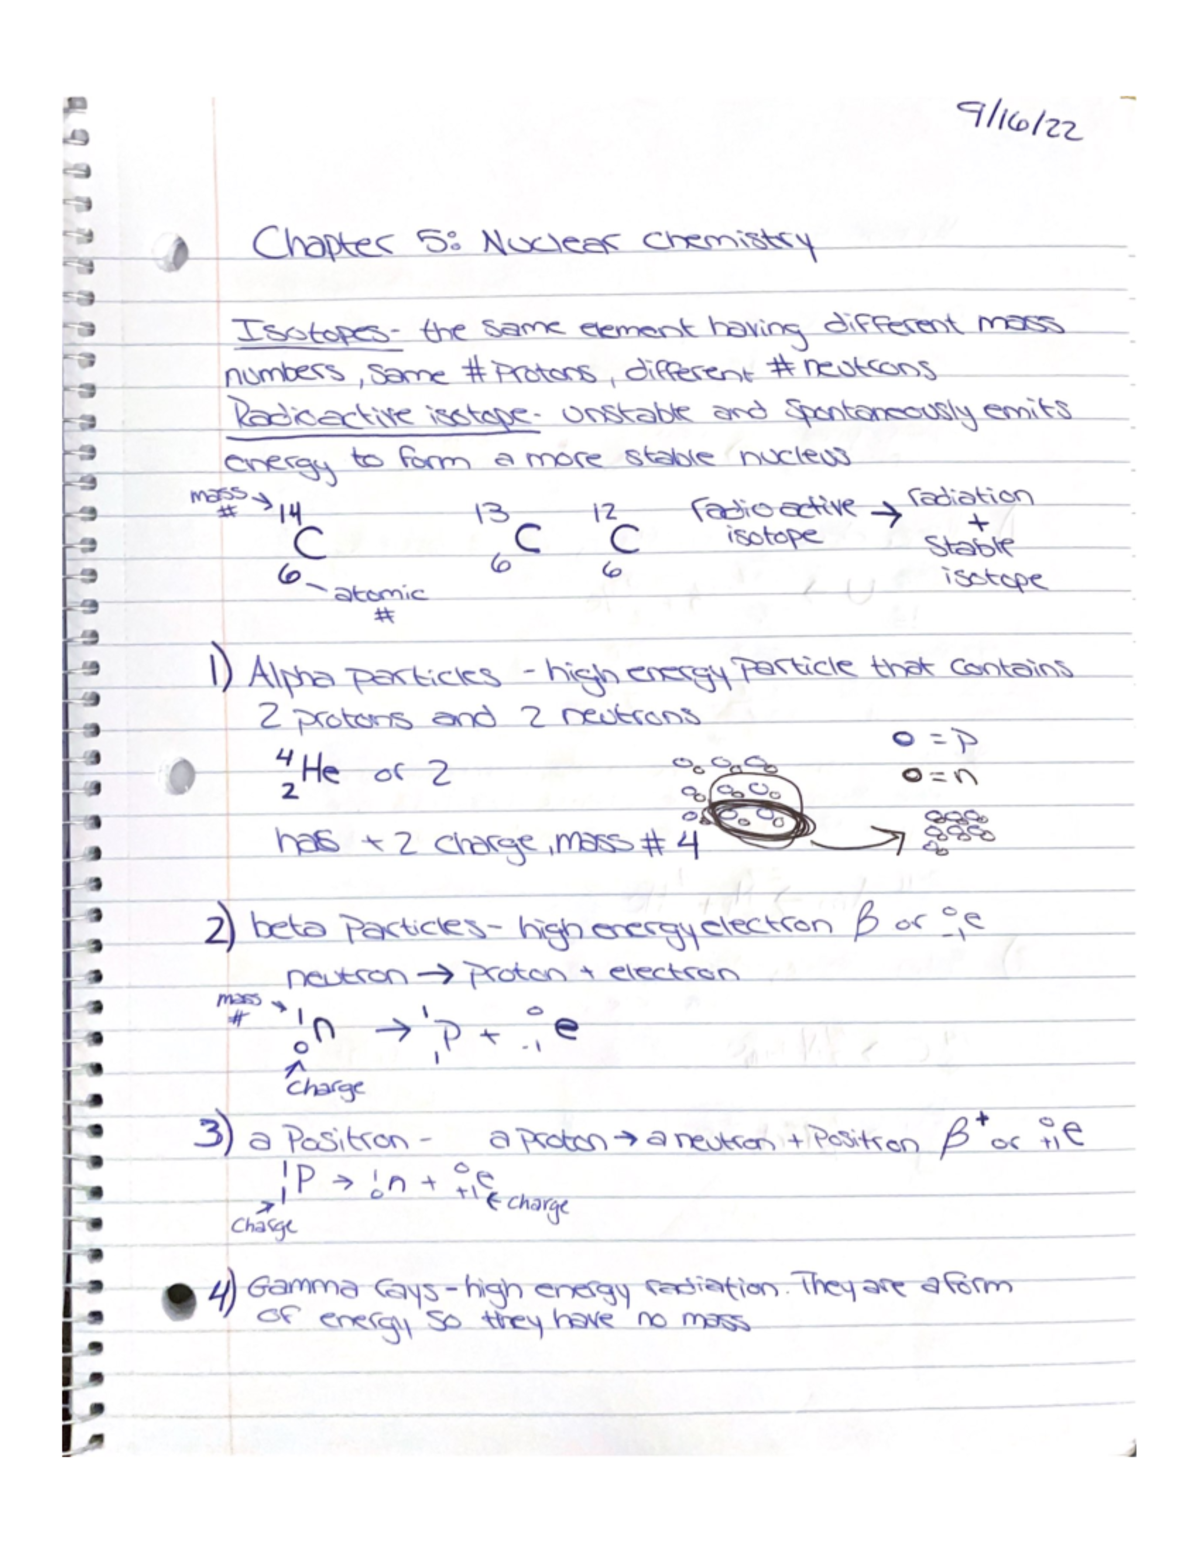 9/16/22
Chapter 5: Nuclear Chemistry
Isotopes - the same element having different mass
numbers, same # protons, different # neutrons
Radioactive isotope - unstable and spontaneously emits
energy to form a more stable nucleus
mass # → 14 C 6 - atomic #
13 C 6
12 C 6
radioactive isotope → radiation + stable isotope
1) Alpha particles - high energy particle that contains
2 protons and 2 neutrons
o = p
4 2 He or 2
o = n
has + 2 charge, mass # 4
2) beta particles - high energy electron β or 0 -1 e
neutron → proton + electron
mass # → 1 0 n → 1 1 p + 0 -1 e
charge
3) a Positron - a proton → a neutron + Positron β+ or 0 +1 e
1 1 P → 1 0 n + 0 +1 e
charge
charge
4) Gamma rays - high energy radiation. They are a form
of energy so they have no mass